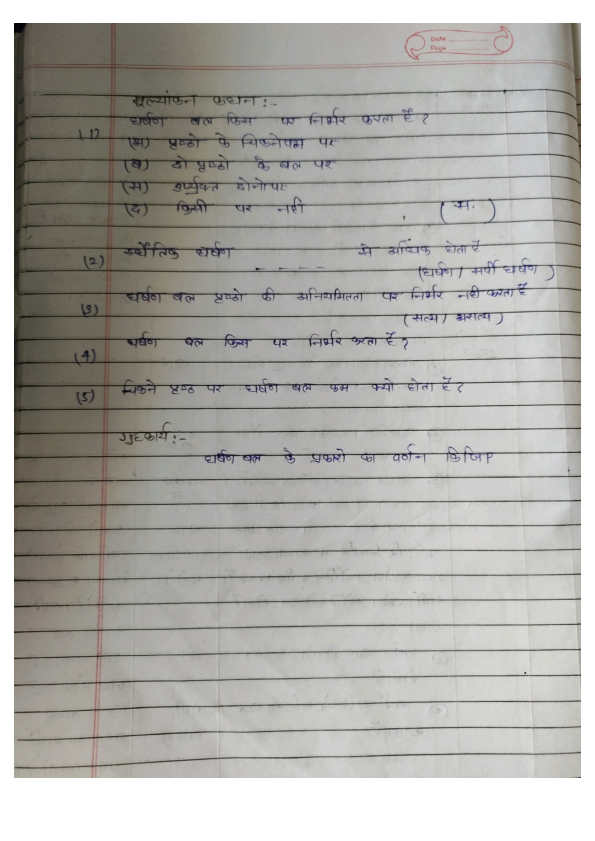 Date
Page
मूल्यांकन कथन :-
(1) घर्षण बल किस पर निर्भर करता है ?
(अ) प्रष्ठो के चिकनेपन पर
(ब) दो प्रष्ठो के बल पर
(स) उपर्युक्त दोनो पर
(द) किसी पर नही (स.)
(2) स्थैतिक घर्षण - - - - - से अधिक होता है
(घर्षण / सर्पी घर्षण )
(3) घर्षण बल प्रष्ठो की अनियमितता पर निर्भर नही करता है
(सत्य / असत्य )
(4) घर्षण बल किस पर निर्भर करता है ?
(5) चिकने प्रष्ठ पर घर्षण बल कम क्यो होता है ?
गृहकार्य :-
घर्षण बल के प्रकारो का वर्णन किजिए